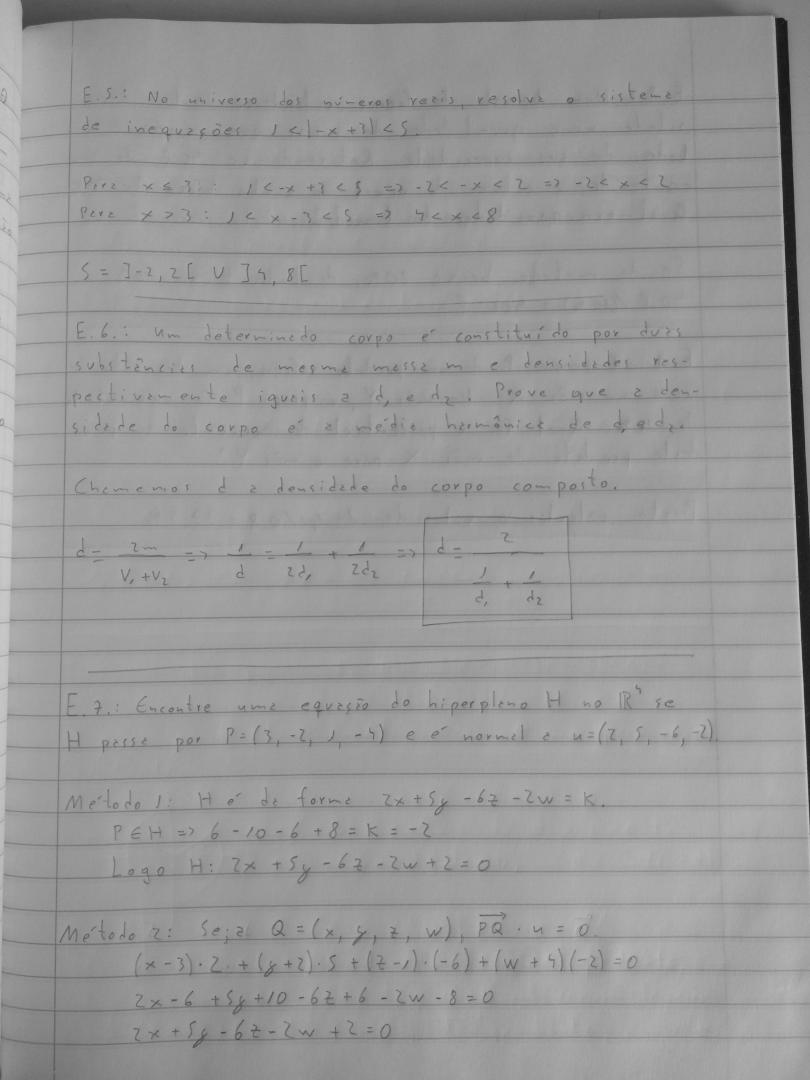 E.5.: No universo dos números reais, resolva o sistema
de inequações 1 < |-x + 3| < 5.
Para x ≤ 3 : 1 < -x + 3 < 5 => -2 < -x < 2 => -2 < x < 2
Para x > 3 : 1 < x - 3 < 5 => 4 < x < 8
S = ]-2, 2[ U ]4, 8[
E.6.: Um determinado corpo é constituído por duas
substâncias de mesma massa m e densidades res-
pectivamente iguais a d₁ e d₂. Prove que a den-
sidade do corpo é a média harmônica de d₁ e d₂.
Chamemos d a densidade do corpo composto.
d = 2m / (V₁ + V₂) => 1/d = 1/2d₁ + 1/2d₂ => d = 2 / (1/d₁ + 1/d₂)
E.7.: Encontre uma equação do hiperplano H no ℝ⁴ se
H passa por P = (3, -2, 1, -4) e é normal a u = (2, 5, -6, -2).
Método 1: H é da forma 2x + 5y - 6z - 2w = K.
P ∈ H => 6 - 10 - 6 + 8 = K = -2
Logo H: 2x + 5y - 6z - 2w + 2 = 0
Método 2: Seja Q = (x, y, z, w), PQ⃗ · u = 0.
(x - 3) · 2 + (y + 2) · 5 + (z - 1) · (-6) + (w + 4)(-2) = 0
2x - 6 + 5y + 10 - 6z + 6 - 2w - 8 = 0
2x + 5y - 6z - 2w + 2 = 0